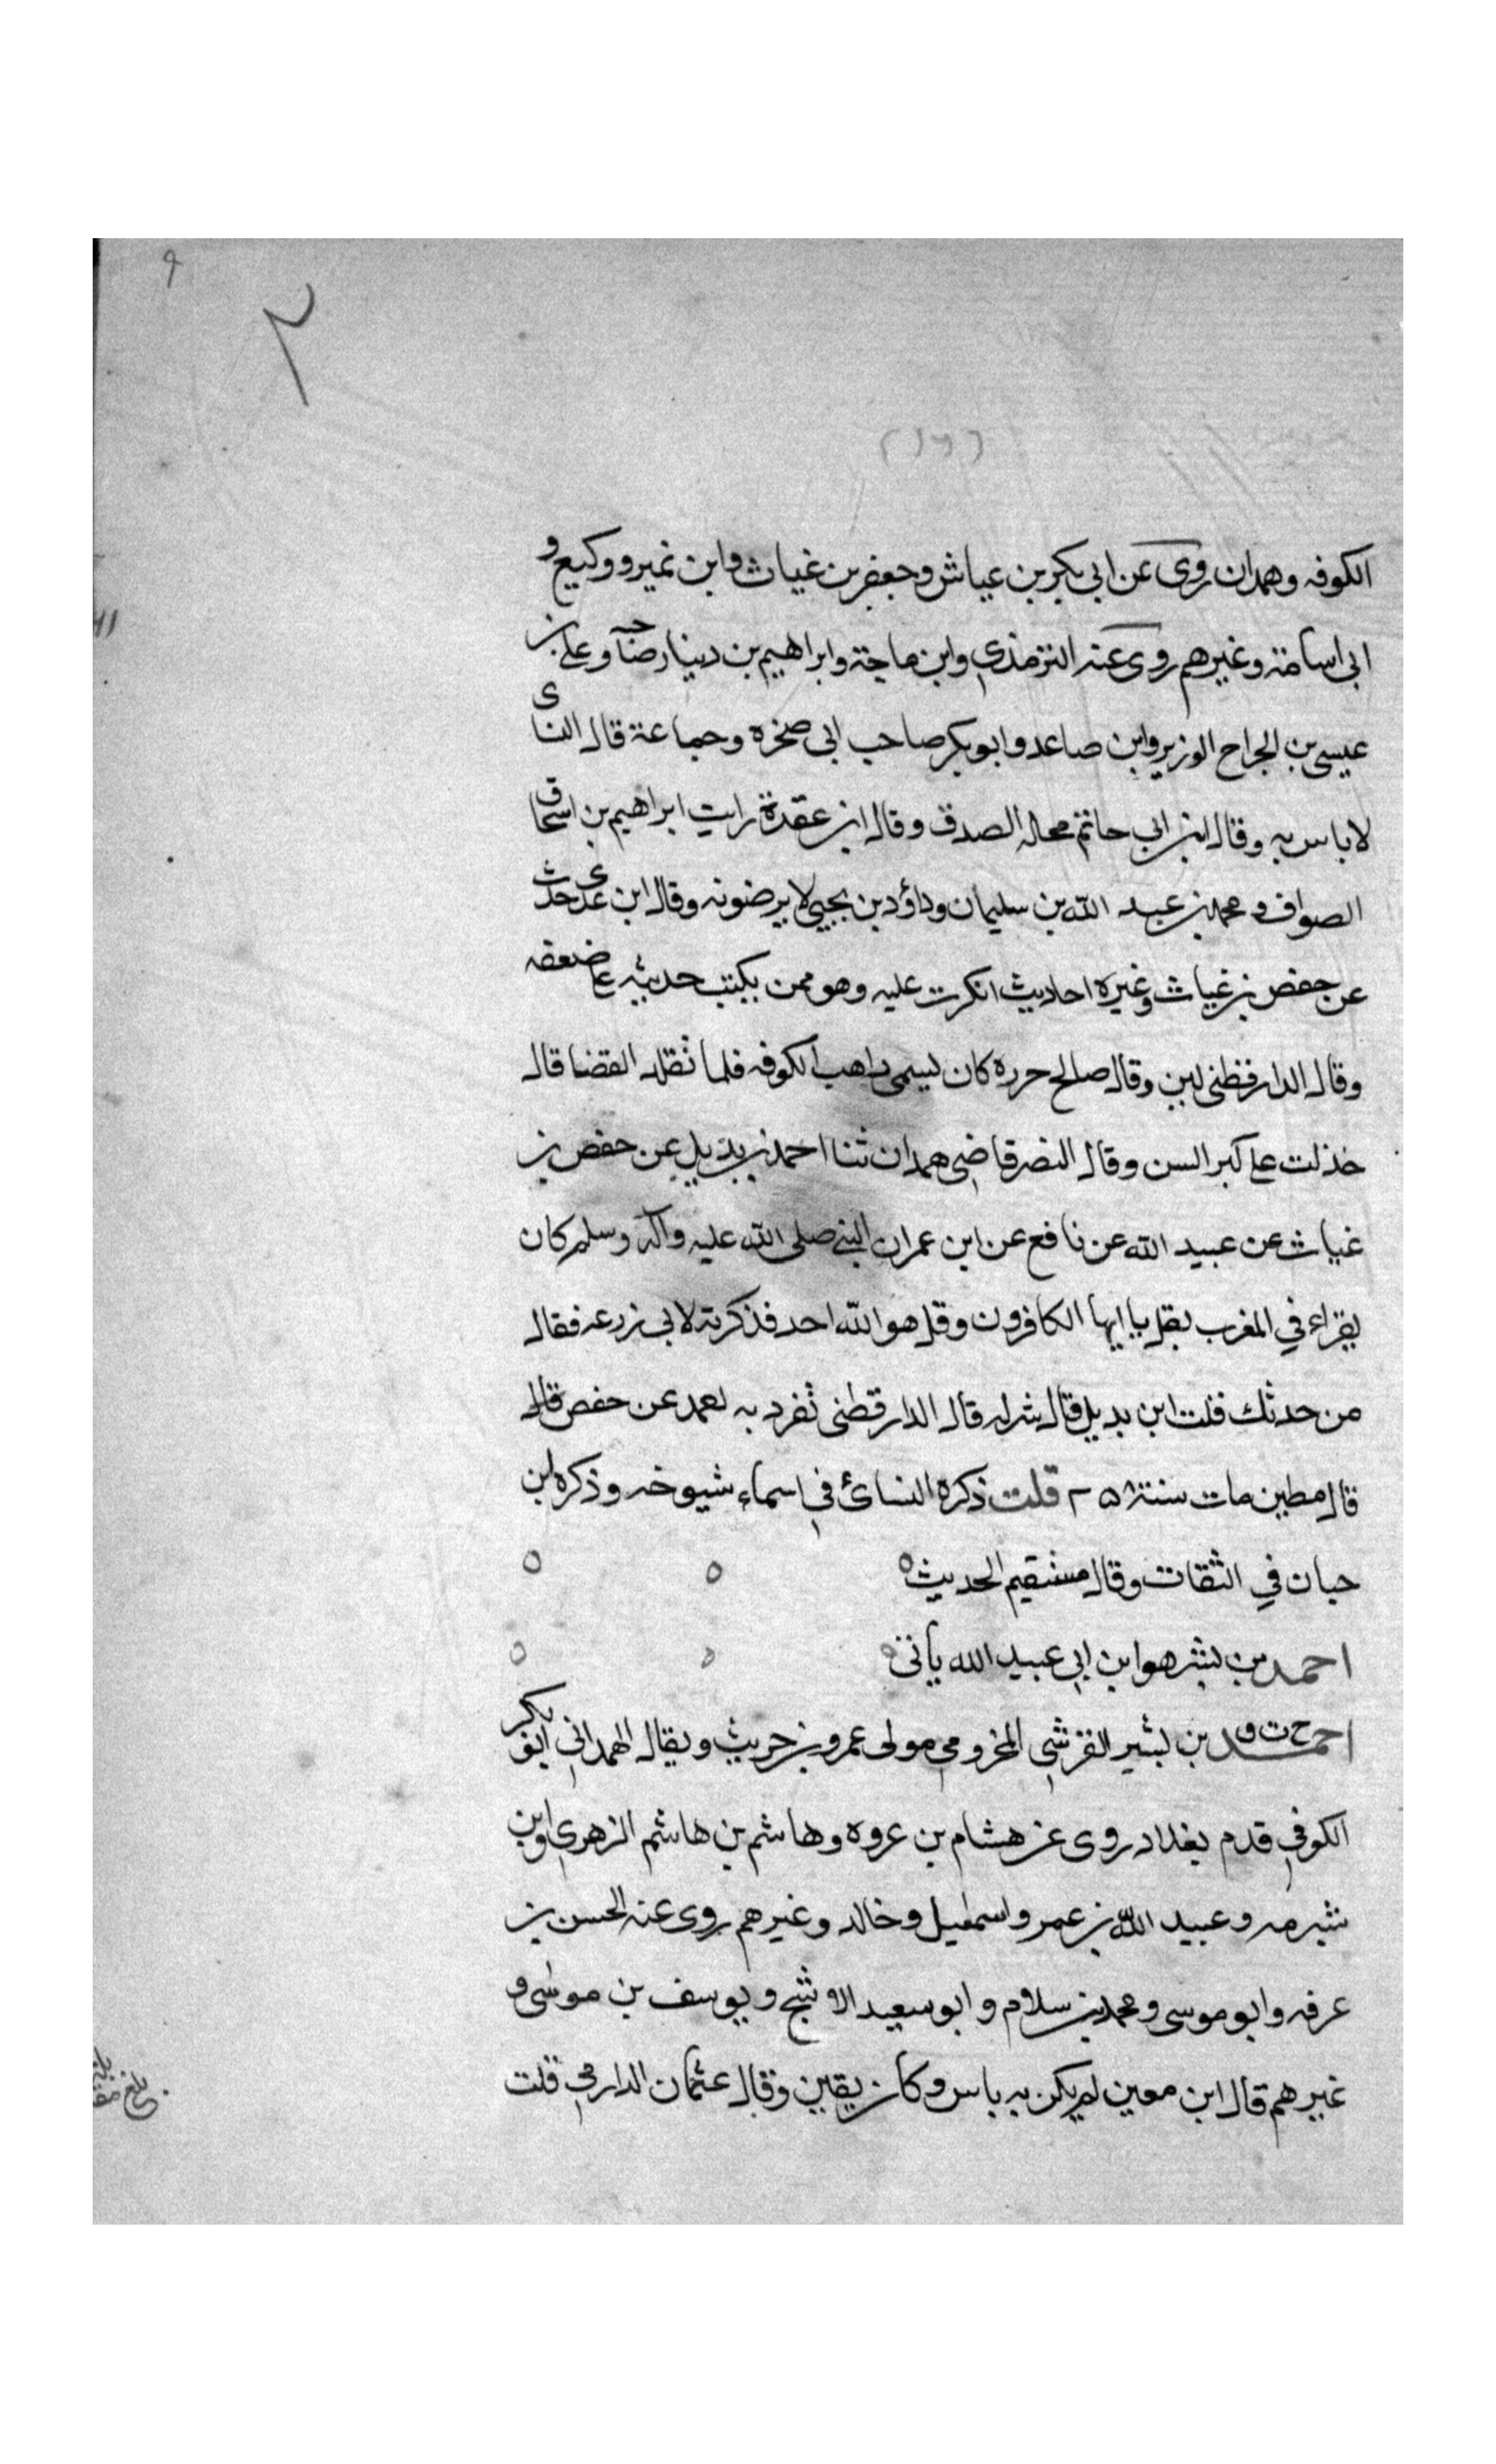 ٩
٢
(١٦)
الكوفه وهمدان روى عن ابى بكر بن عياش وجعفر بن غياث وابن نمير ووكيع و
ابى اسامة وغيرهم روى عنه الترمذي وابن ماجة وابراهيم بن دينار صاحب وعلى بن
عيسى بن الجراح الوزير وابن صاعد وابو بكر صاحب ابى صخره وجماعة قال النساى
لا باس به وقال ابن ابى حاتم محله الصدق وقال ابن عقدة رايت ابراهيم بن اسحاق
الصواف ومحمد بن عبد الله بن سليمان وداؤد بن يحيى لا يرضونه وقال ابن عدى حدث
عن حفص بن غياث وغيره احاديث انكرت عليه وهو ممن يكتب حديثه على ضعفه
وقال الدارقطنى لين وقال صالح جرره كان يسمى راهب الكوفه فلما تقلد القضا قال
خذلت على كبر السن وقال النضر قاضى همدان ثنا احمد بن بديل عن حفص بن
غياث عن عبيد الله عن نافع عن ابن عمر ان النبى صلى الله عليه وآله وسلم كان
يقراء في المغرب بقل يا ايها الكافرون وقل هو الله احد فذكرته لابى زرعه فقال
من حدثك قلت ابن بديل قال شر له قال الدارقطنى تفرد به احمد عن حفص قال
قال مطين مات سنة ٢٥٨ قلت ذكره النسائ في اسماء شيوخه وذكره ابن
حبان في الثقات وقال مستقيم الحديث ه
احمد بن بشر هو ابن ابى عبيد الله يأتى
احمد خ ت ق بن بشير القرشى المخزومى مولى عمرو بن حريث ويقال الهمدانى ابو بكر
الكوفي قدم بغداد روى عن هشام بن عروه وهاشم بن هاشم الزهري وابن
شبرمه وعبيد الله بن عمر واسمعيل وخالد وغيرهم روى عنه الحسن بن
عرفه وابو موسى ومحمد بن سلام وابو سعيد الاشج ويوسف بن موسى و
غيرهم قال ابن معين لم يكن به باس وكان يقين وقال عثمان الدارمى قلت
بلغ